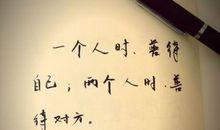 一个人时，善待
自己；两个人时，善
待对方。